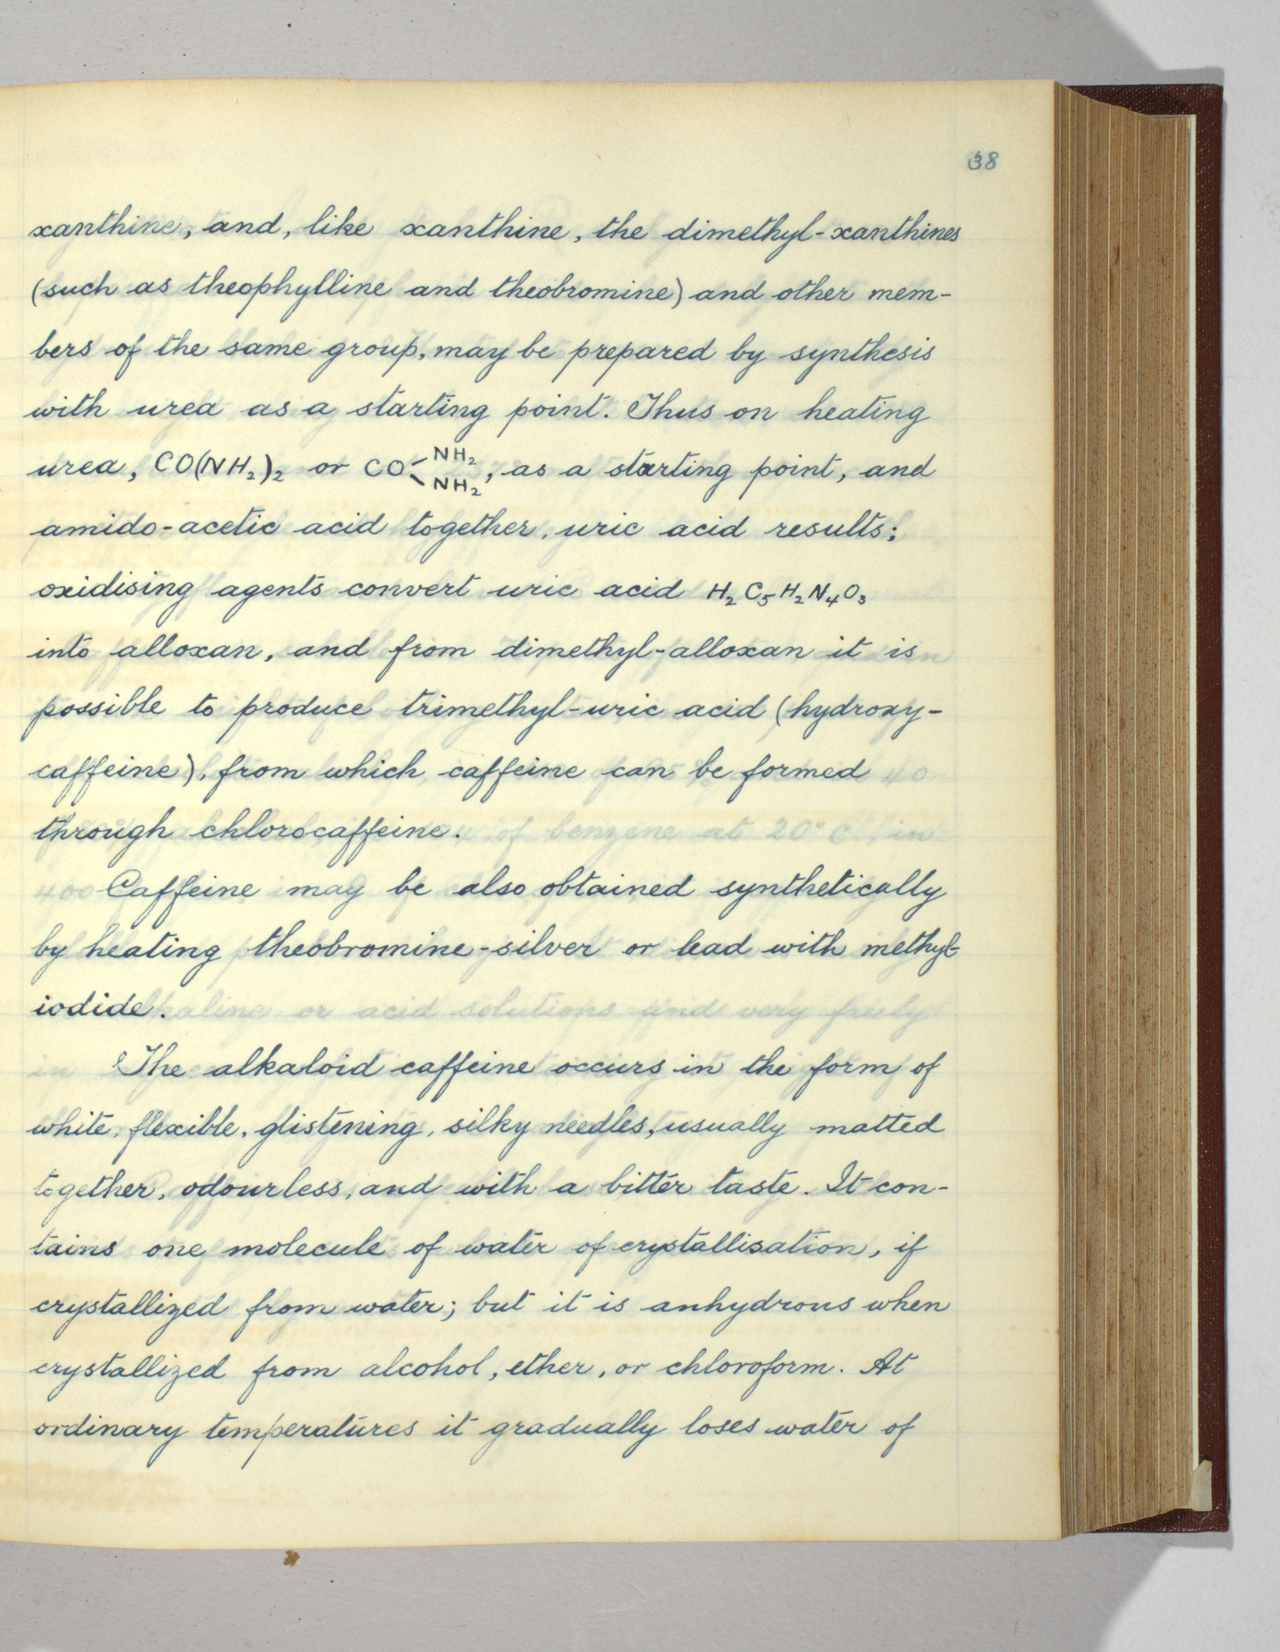 38
xanthine, and, like xanthine, the dimethyl-xanthines
(such as theophylline and theobromine) and other mem-
bers of the same group, may be prepared by synthesis
with urea as a starting point. Thus on heating
urea, CO(NH₂)₂ or CO<NH₂ NH₂, as a starting point, and
amido-acetic acid together, uric acid results;
oxidising agents convert uric acid H₂C₅H₂N₄O₃
into alloxan, and from dimethyl-alloxan it is
possible to produce trimethyl-uric acid (hydroxy-
caffeine), from which caffeine can be formed
through chlorocaffeine.
Caffeine may be also obtained synthetically
by heating theobromine-silver or lead with methyl-
iodide.
The alkaloid caffeine occurs in the form of
white, flexible, glistening, silky needles, usually matted
together, odourless, and with a bitter taste. It con-
tains one molecule of water of crystallisation, if
crystallized from water; but it is anhydrous when
crystallized from alcohol, ether, or chloroform. At
ordinary temperatures it gradually loses water of